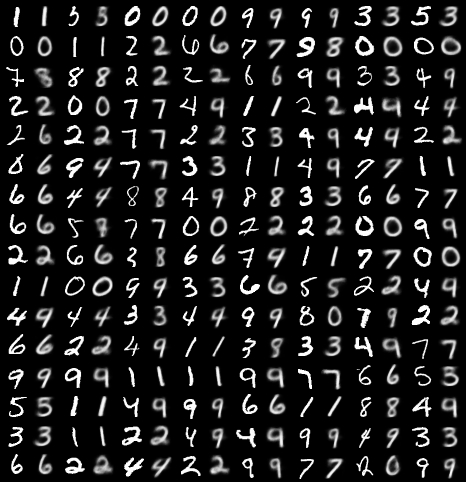 1 1 5 5 0 0 0 0 9 9 9 9 3 3 5 3
0 0 1 1 2 2 6 6 7 7 9 8 0 0 0 0
7 8 8 8 2 2 2 2 6 6 9 9 3 3 4 9
2 2 0 0 7 7 4 9 1 1 2 2 4 9 4 4
2 6 2 2 7 7 2 2 3 3 4 9 4 9 2 2
0 6 9 4 7 7 3 3 1 1 4 9 7 7 1 1
6 6 4 4 8 8 4 9 8 8 3 3 6 6 7 7
6 6 5 8 7 7 0 0 2 2 2 2 0 0 9 9
2 2 6 6 3 8 6 6 7 9 1 1 7 7 0 0
1 1 0 0 9 9 3 3 6 6 5 5 2 2 4 9
4 9 4 4 3 3 4 4 9 9 8 0 7 9 2 2
6 6 2 2 4 9 1 1 3 8 3 3 4 9 7 7
9 9 9 9 1 1 1 1 9 9 7 7 6 6 5 3
5 5 1 1 4 9 9 9 6 6 1 1 8 8 4 9
3 3 1 1 2 2 4 9 4 9 9 9 4 9 3 3
6 6 2 2 4 4 2 2 9 9 7 7 2 0 9 9